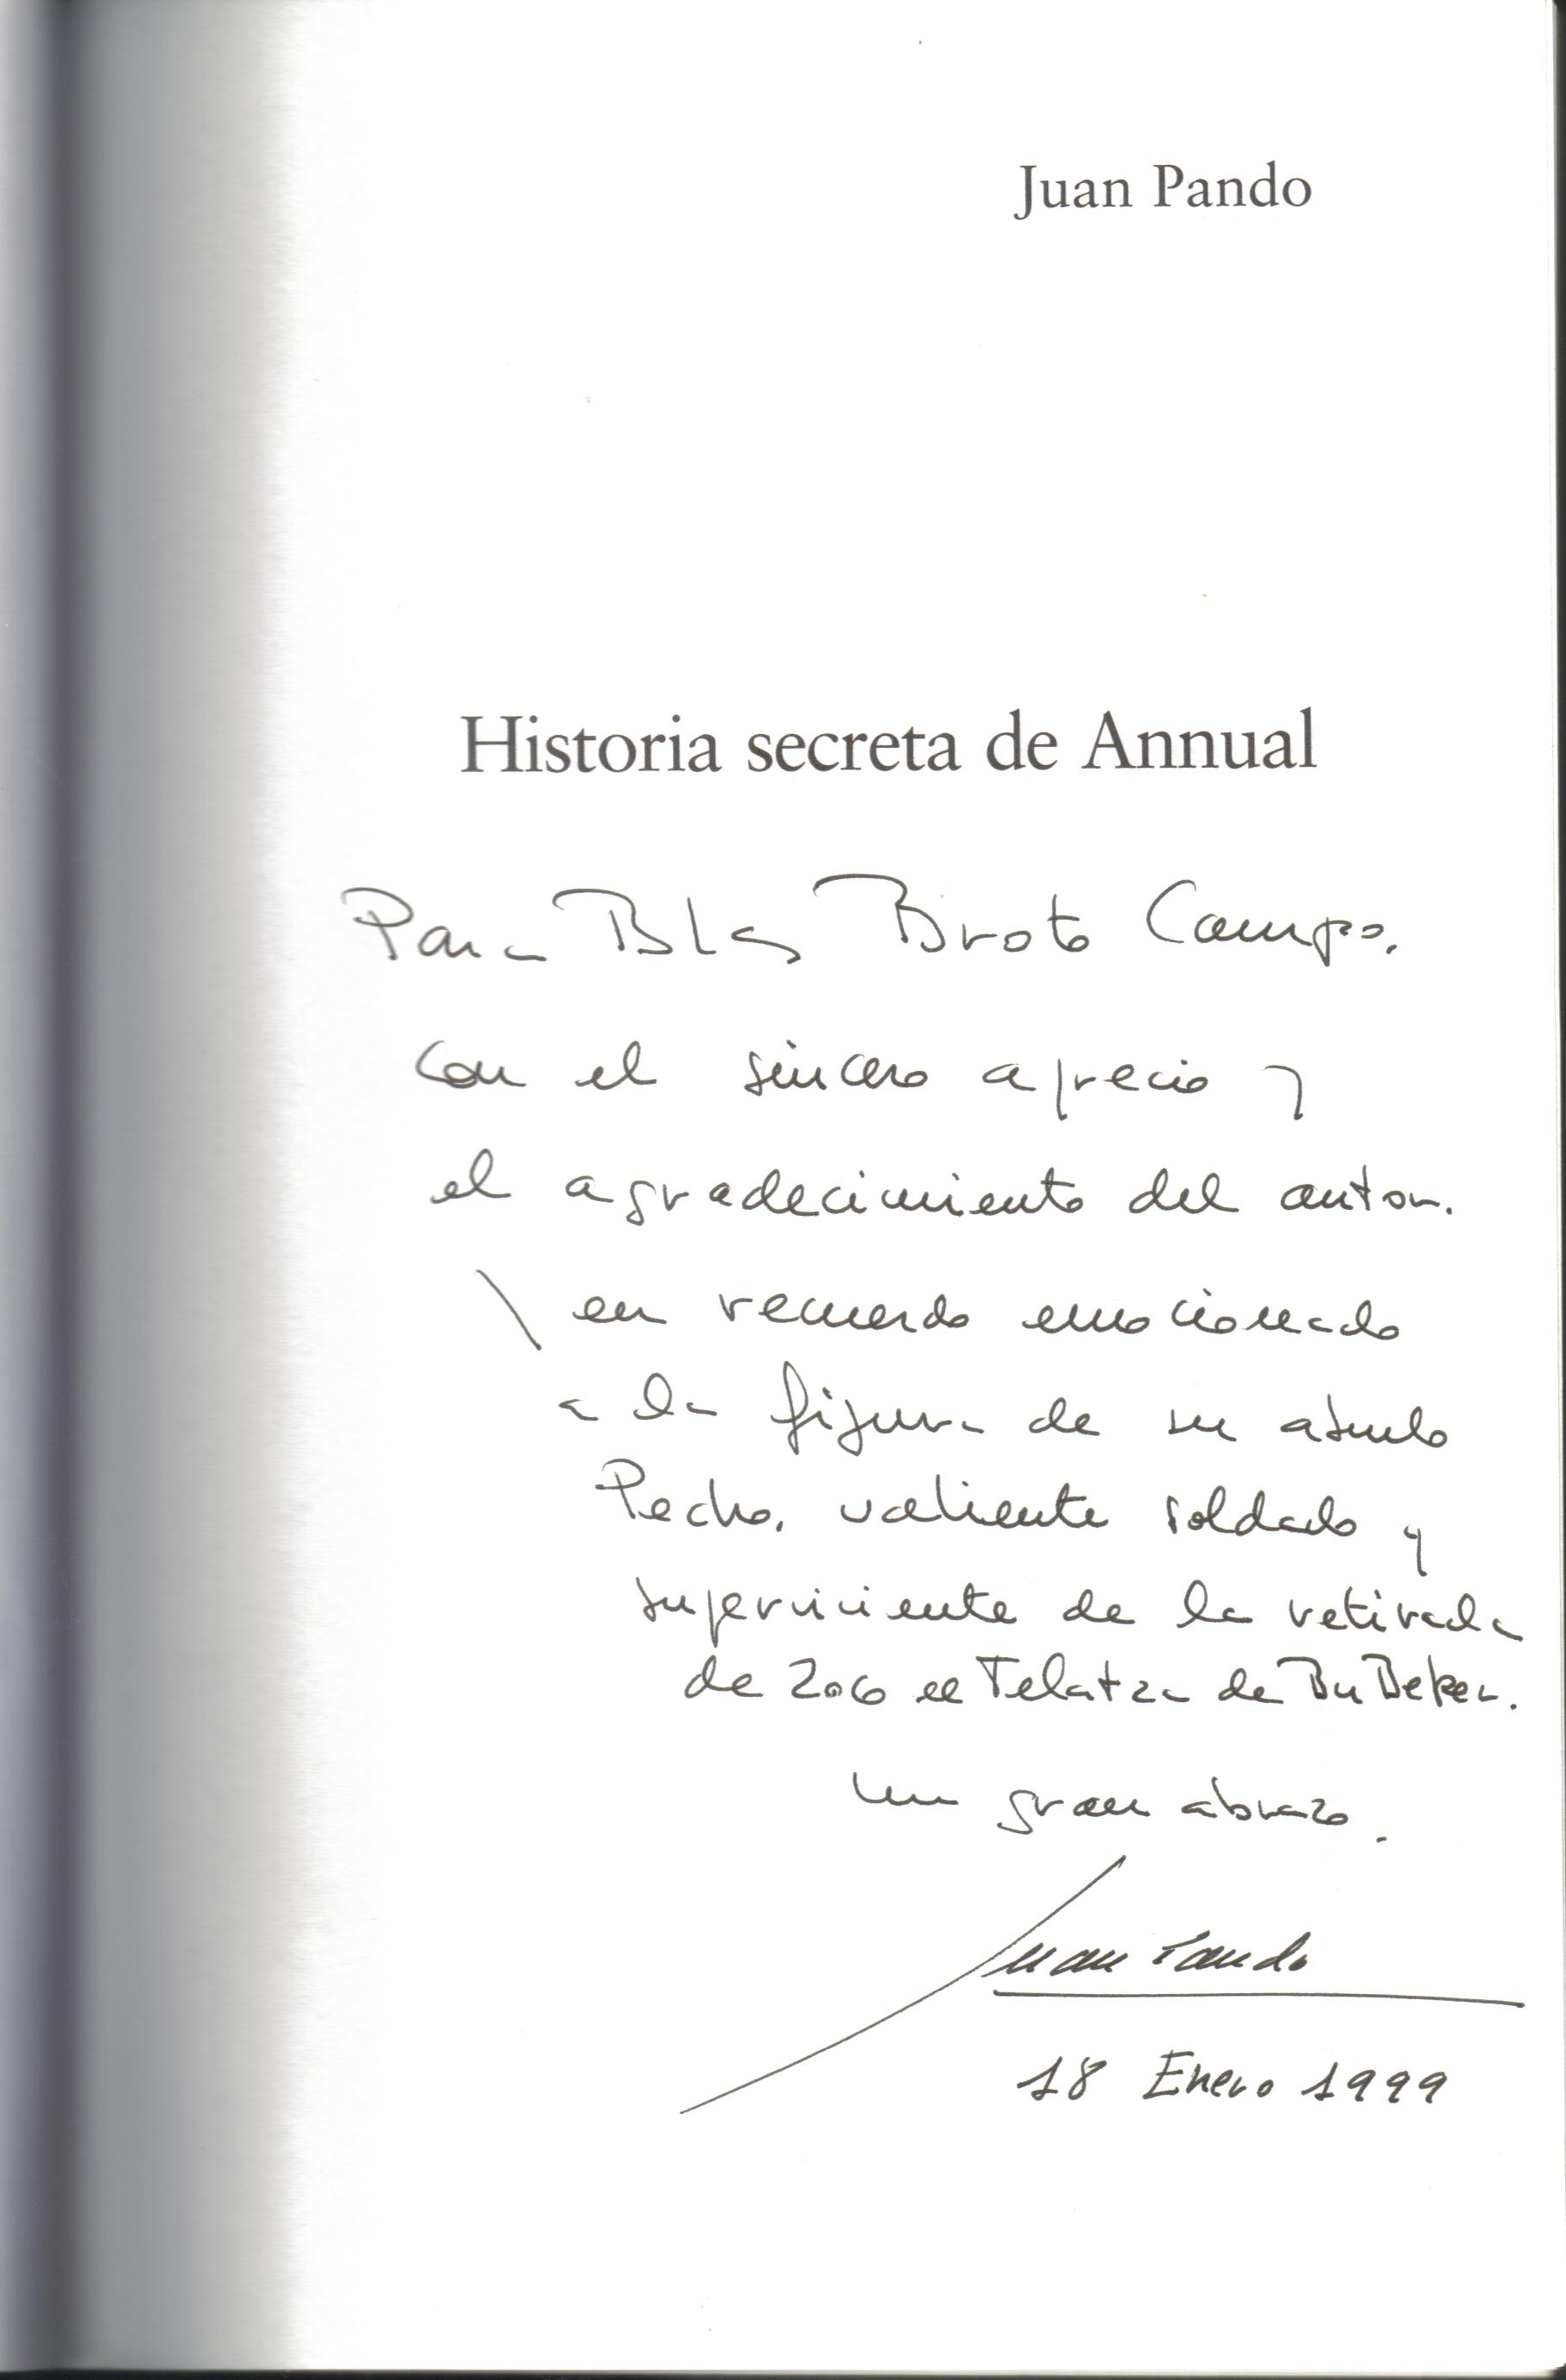 Juan Pando
Historia secreta de Annual
Para Blas Broto Campo,
con el sincero aprecio y
el agradecimiento del autor.
en recuerdo emocionado
a la figura de su abuelo
Pedro, valiente soldado y
superviviente de la retirada
de Zoco el Telatza de Bu Beker.
un gran abrazo.
Juan Pando
18 Enero 1999